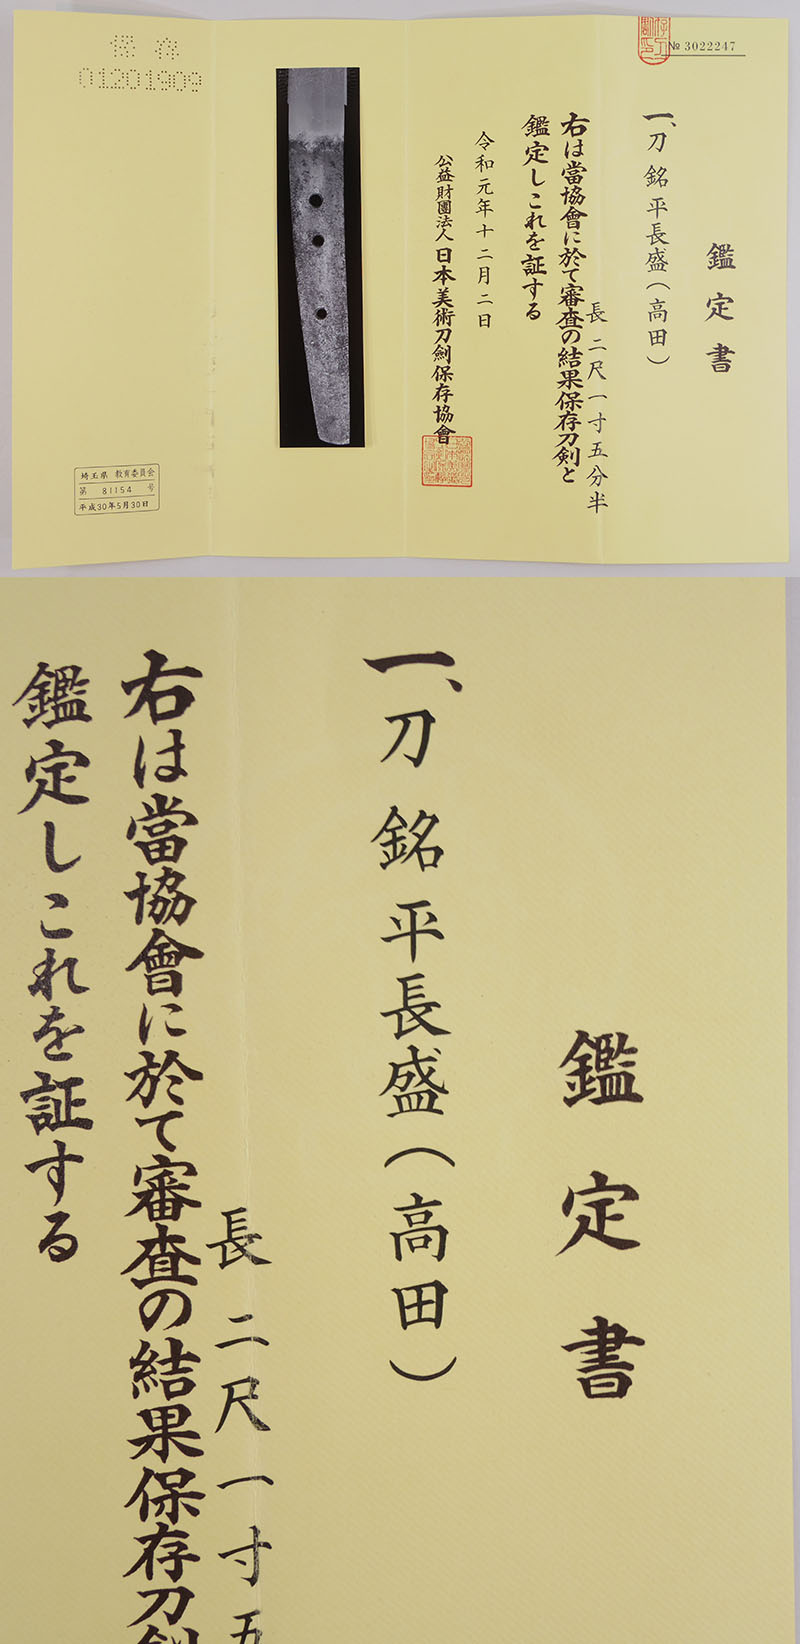 № 3022247
鑑定書
一、刀 銘 平長盛(高田)
長 二尺一寸五分半
右は當協會に於て審査の結果保存刀剣と
鑑定しこれを証する
令和元年十二月二日
公益財團法人 日本美術刀劍保存協會
保存
01201909
埼玉県 教育委員会
第 81154 号
平成30年5月30日
鑑定書
一、刀 銘 平長盛(高田)
長 二尺一寸五
右は當協會に於て審査の結果保存刀剣
鑑定しこれを証する